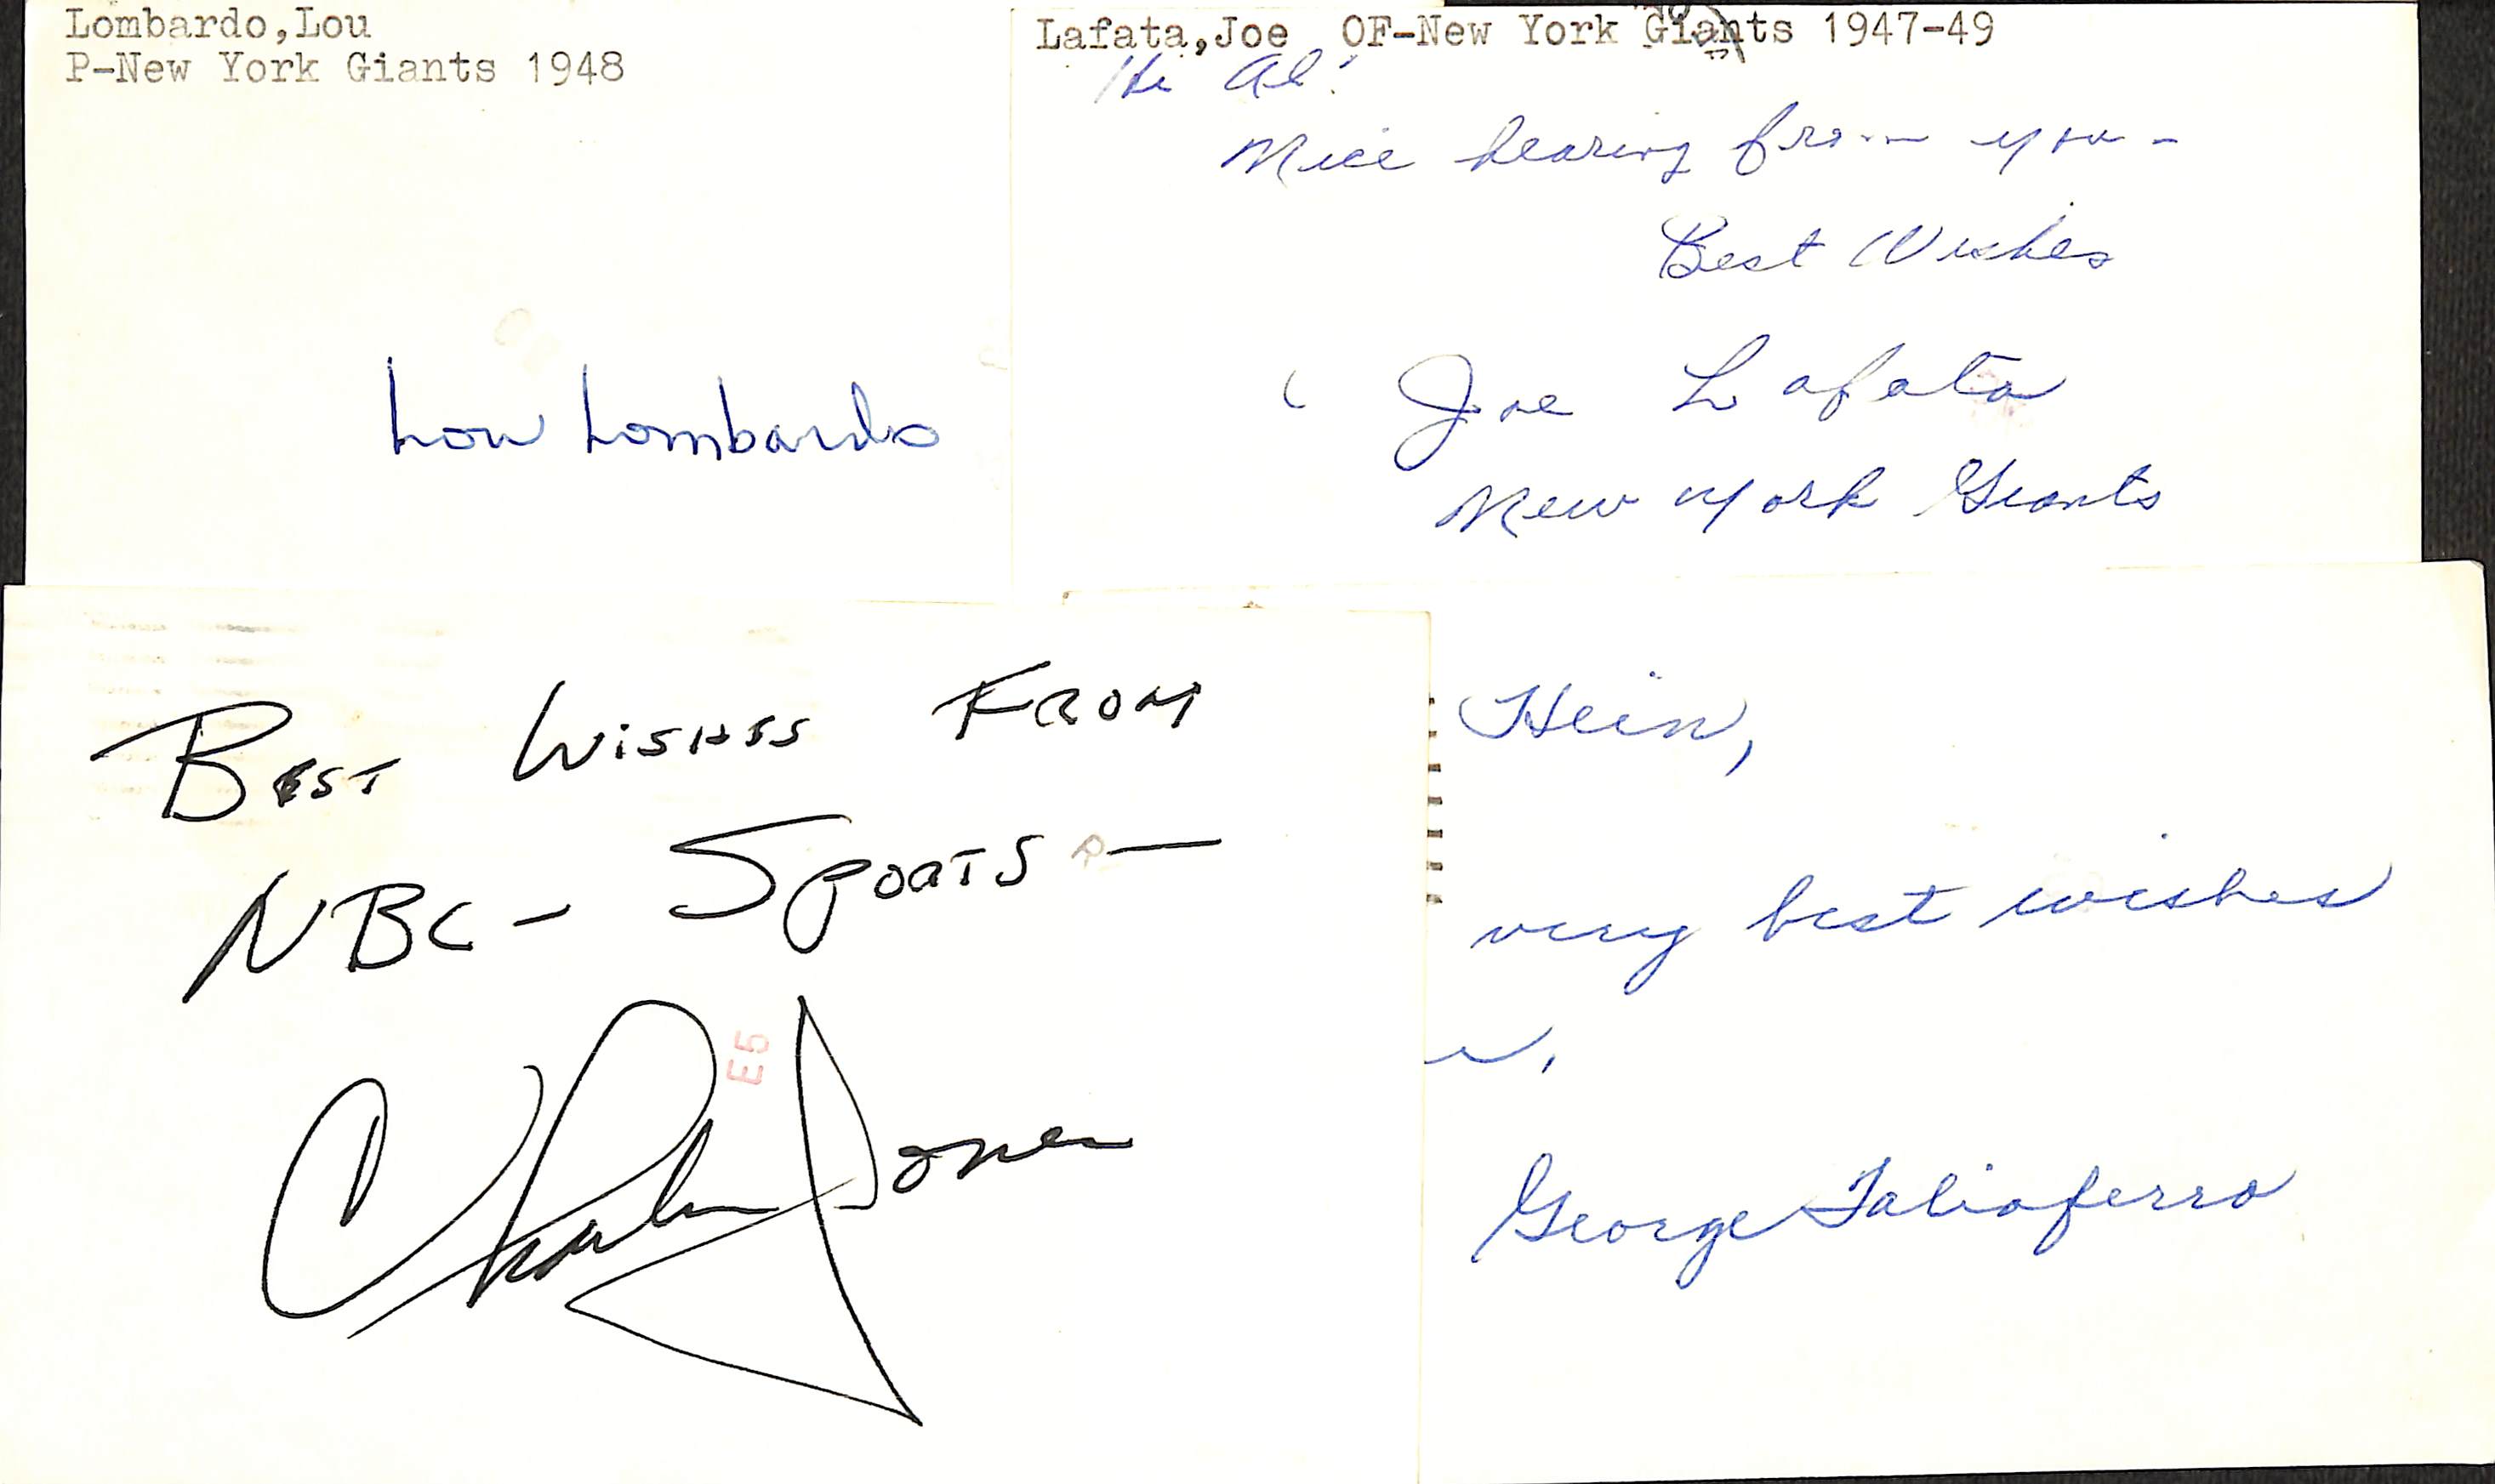 Lombardo,Lou
P-New York Giants 1948
Lou Lombardo
Lafata,Joe OF-New York Giants 1947-49
Hi Al!
Nice hearing from you -
Best Wishes
Joe Lafata
New York Giants
BEST WISHES FROM
NBC - SPORTS -
E5
Charlie Jones
Hein,
very best wishes
George Taliaferro